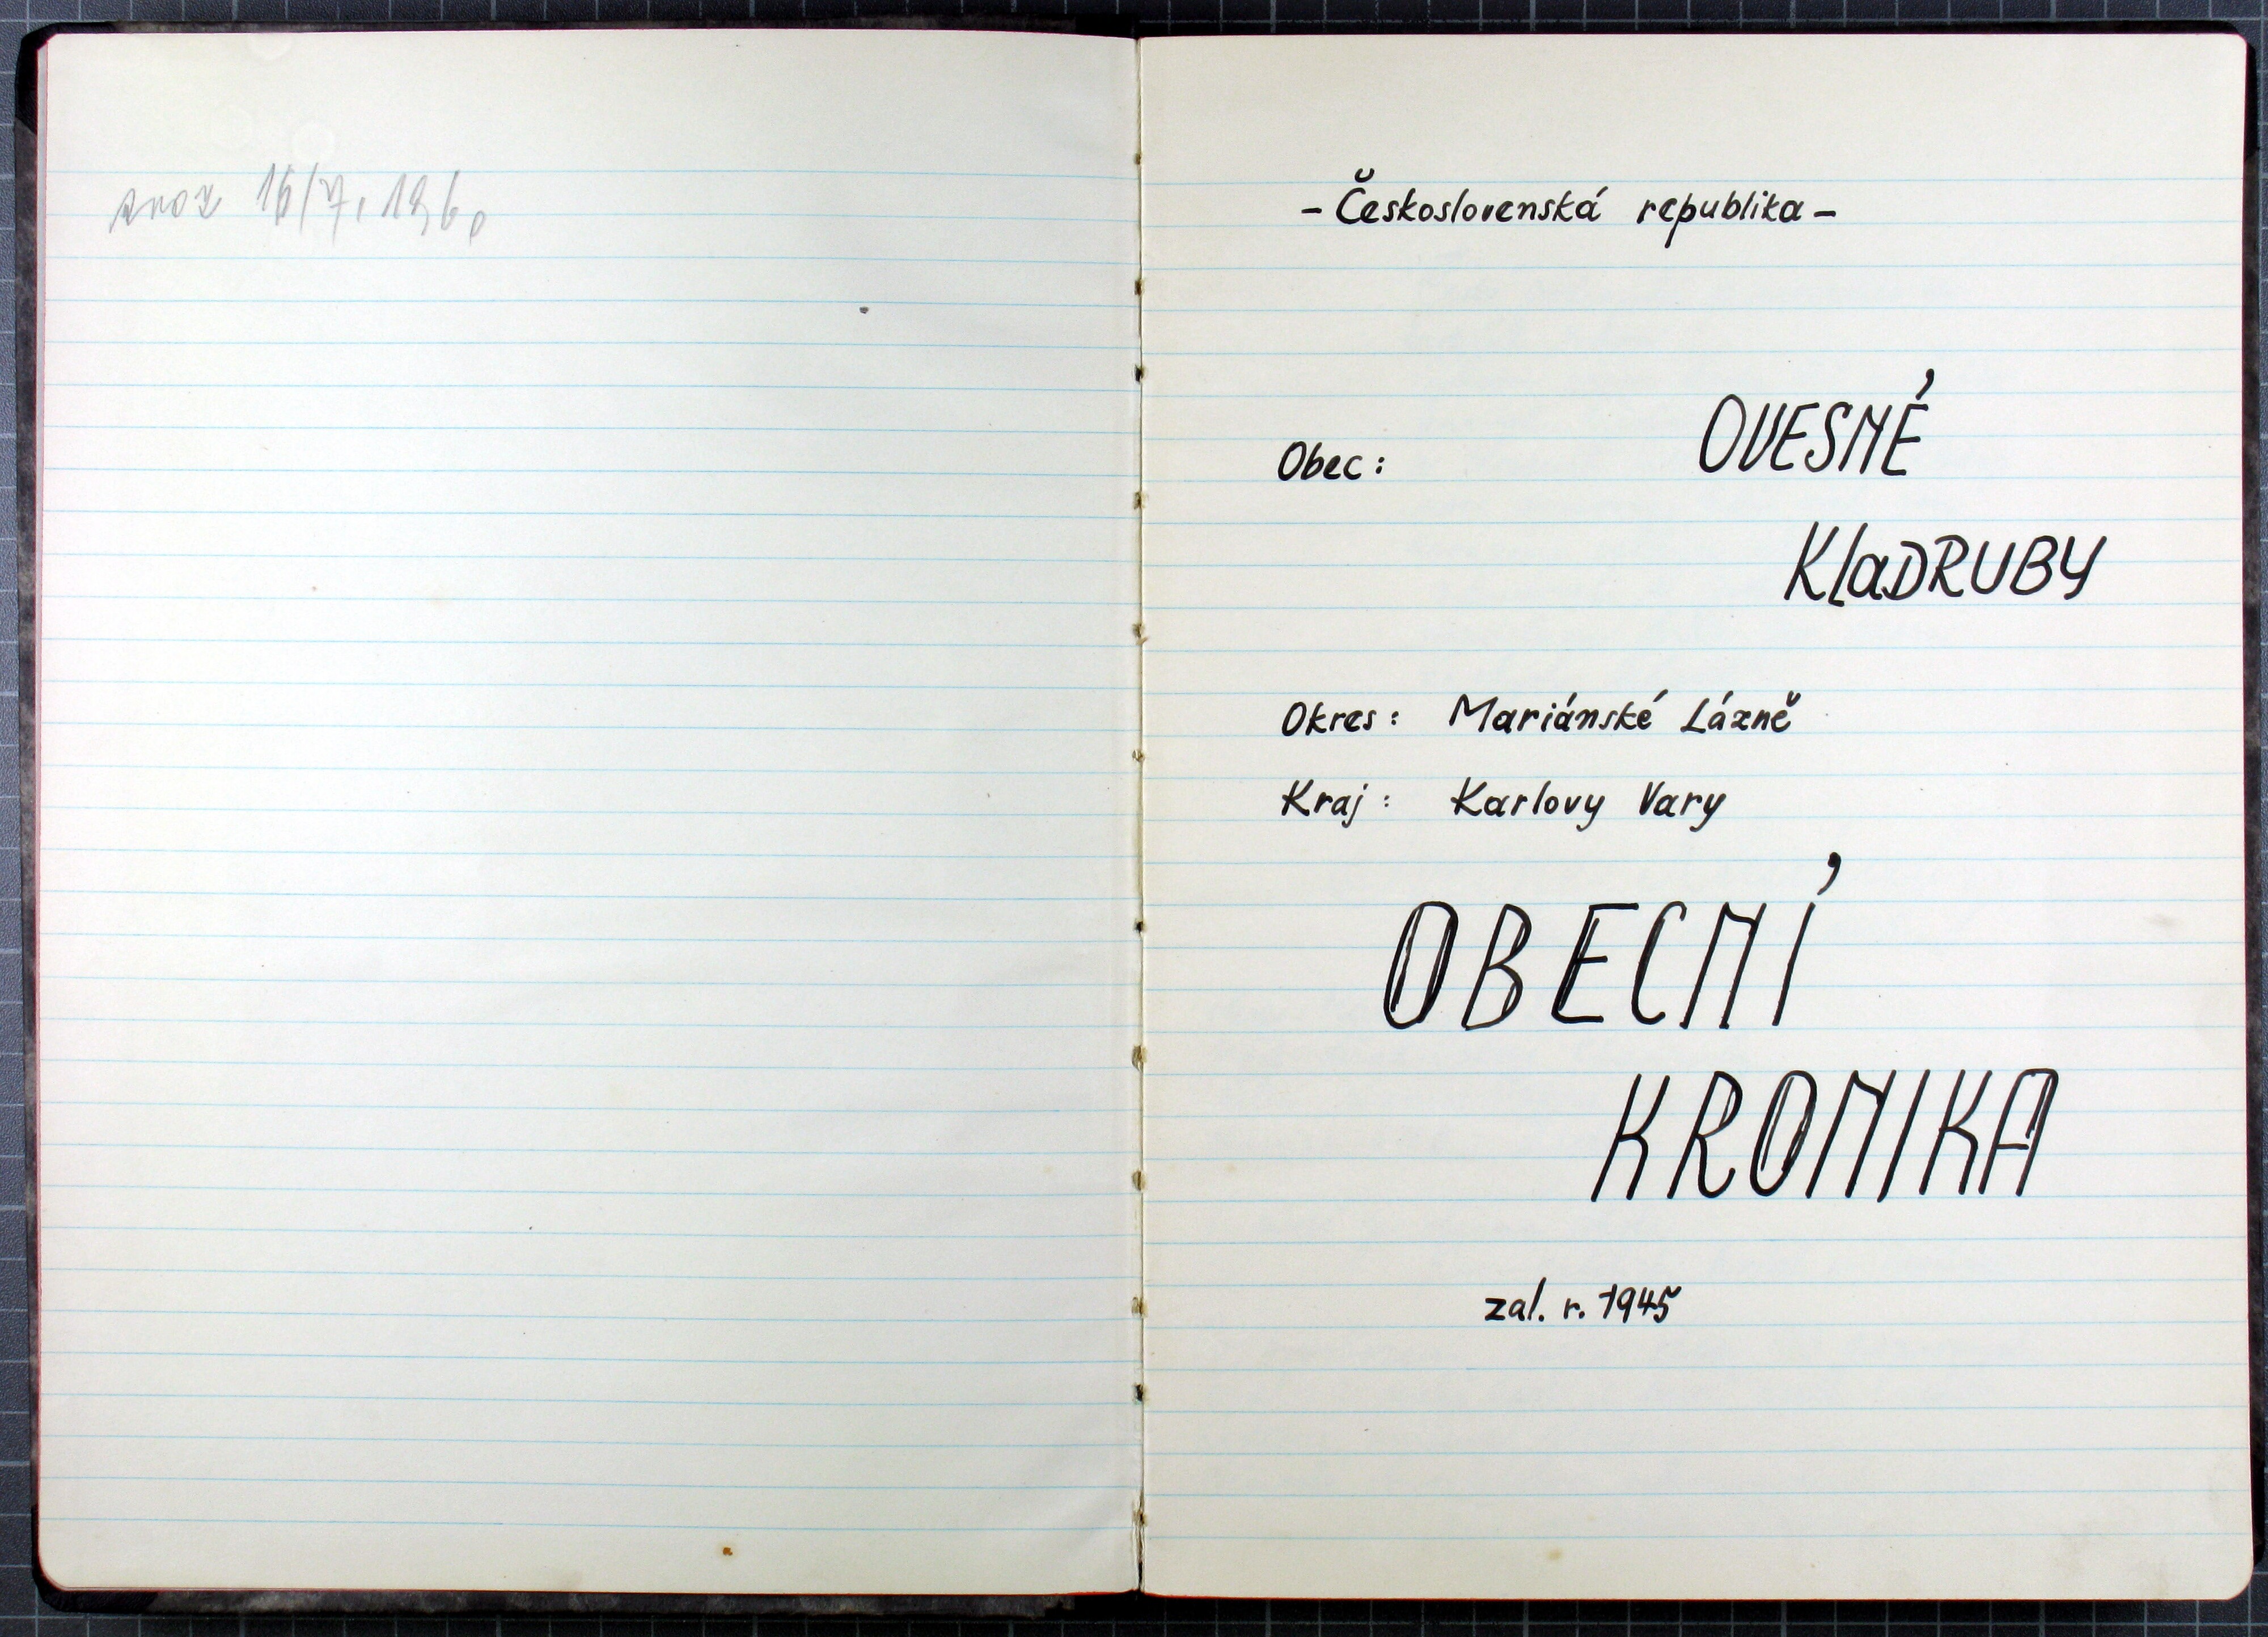 16/7. 1960
- Československá republika -
Obec: OVESNÉ
KlaDRUBY
Okres: Mariánské Lázně
Kraj: Karlovy Vary
OBECNÍ
KRONIKA
zal. r. 1945